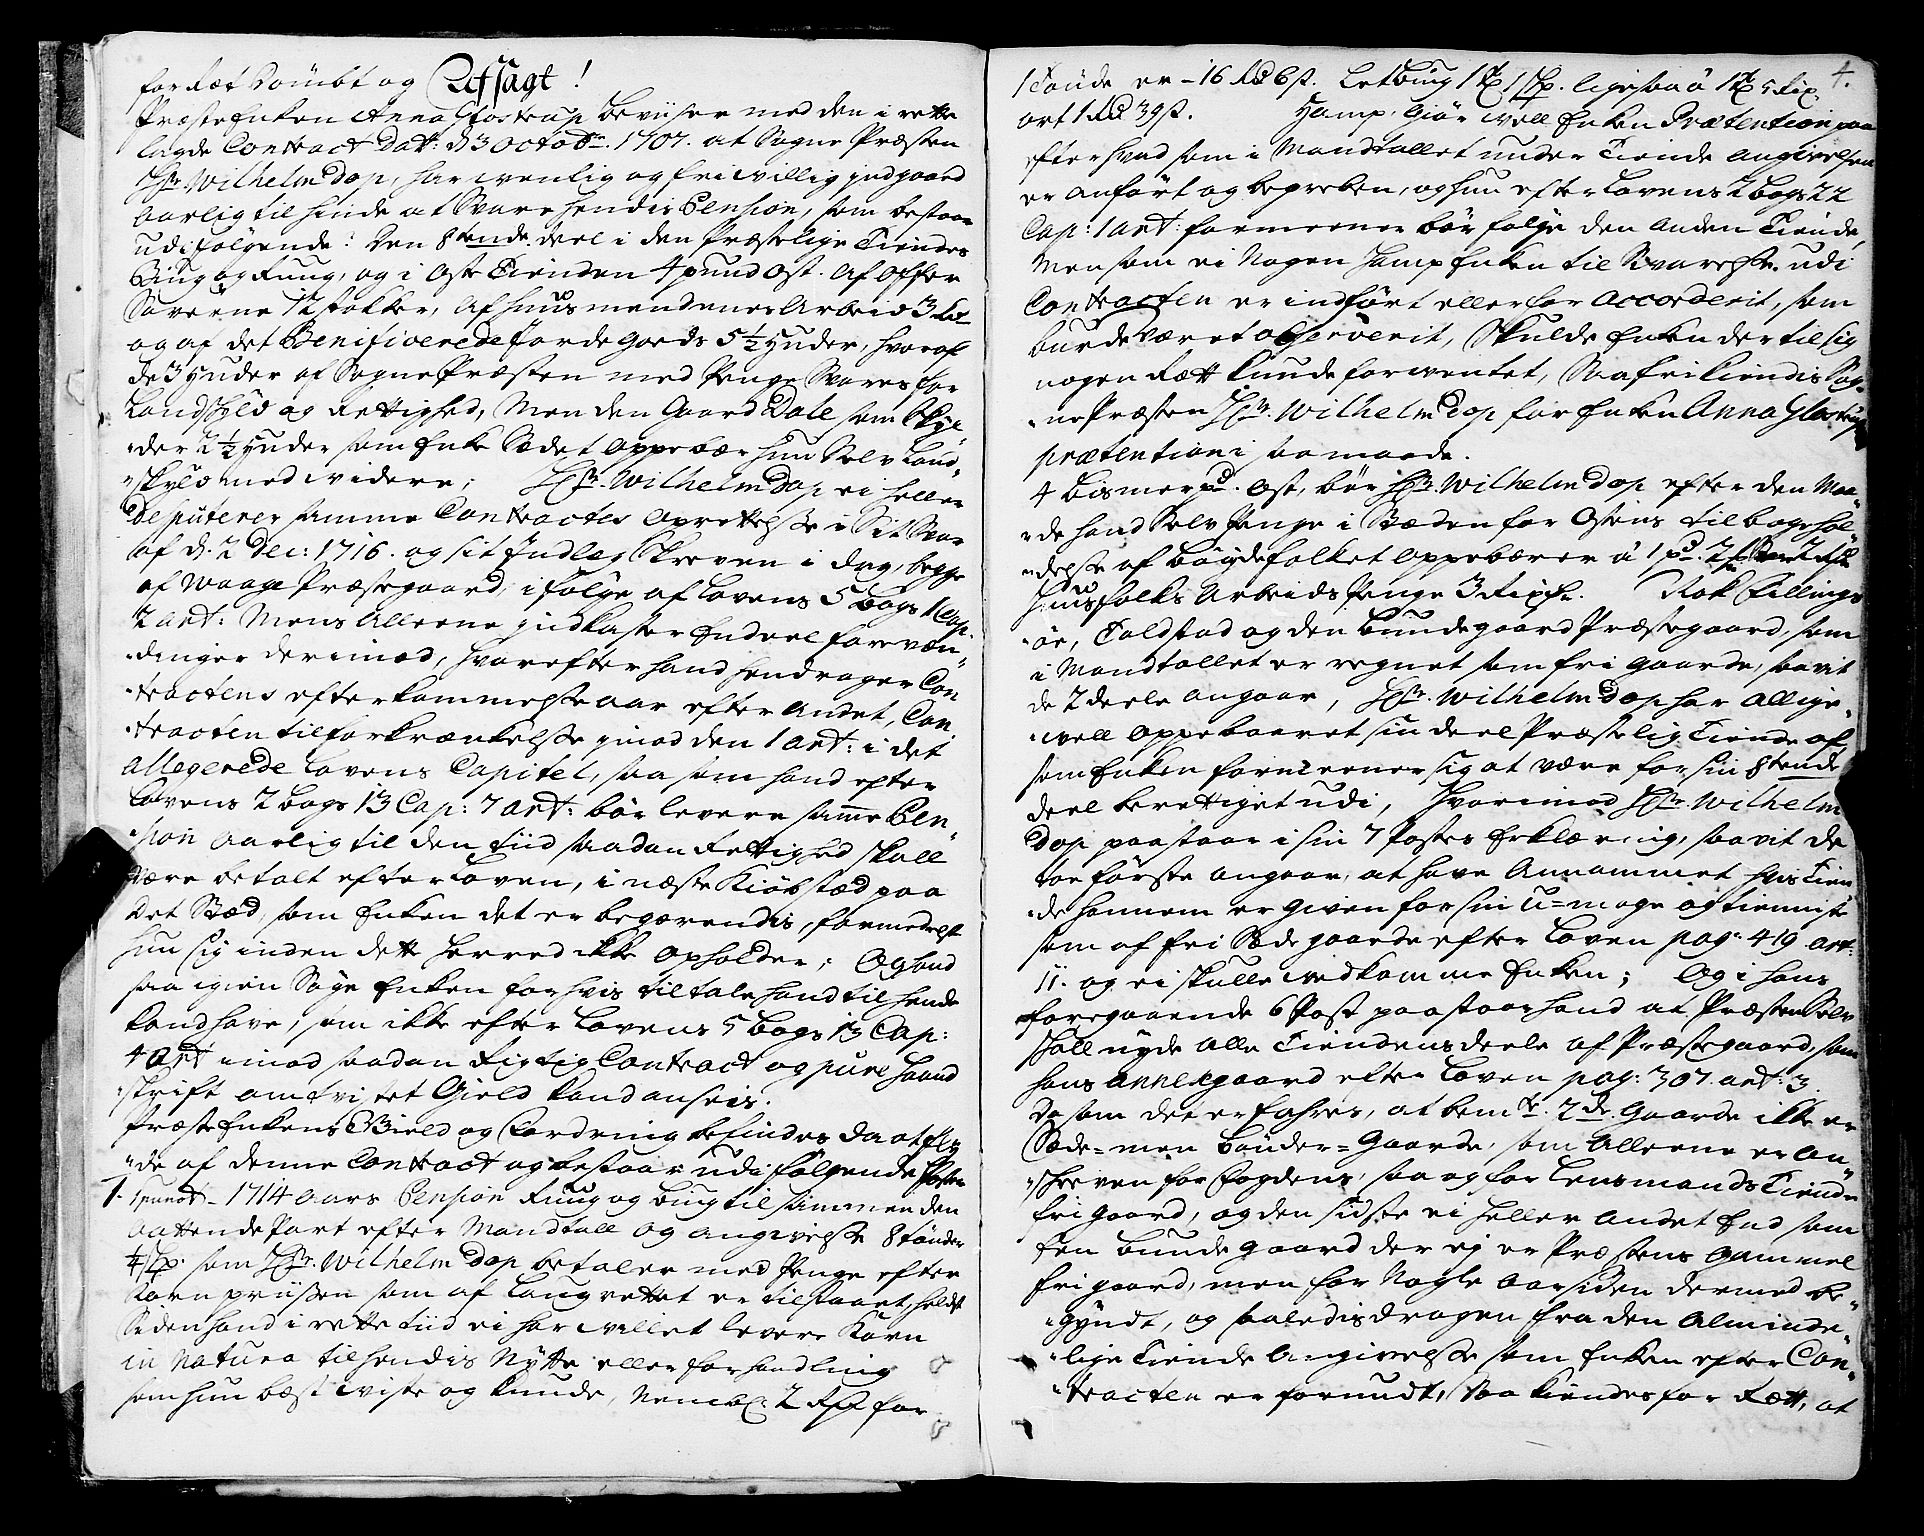 for Ræt Dömbt og Afsagt!
Præste Enken Anna Glostrup beviiser med den i rette
lagde Contract Dat: d 3 Octobr. 1707. at Sogne Præsten
Hr. Wilhelm Dop, har wenlig og frivillig indgaard
Aarlig til hinde at Svare hendis Pension, som bestaar
udi følgende: Den 8tende deel i den Præstelige Tiendes
Biug og Ruug, og i Oste Tienden 4 pund Ost. Af offer
Savene 12 støkker, Af huusmendenes Arbeid 3 Rd
og af det Benificerede Jordegods 5½ Huder, hvoraf
de 3 Huder af Sogne Præsten med Penge Svares for
Landskyld og Rettighed, Men den Gaard Dale som Skyl
der 2½ Huder som Enke Sædet oppebær hun Selv Land
skyld med widere; Hr. Wilhelm Dop ei heller
Disputerer samme Contractes oprettelse i Sit Svar
af d. 2 Dec: 1716. og sit Indlæg Skreven i dag, begge
af Waage Præstegaard, i følge af Lovens 5 bogs 1 Cap.
2 Art: Mens Alleene indkaster Endeel forevæn
dinger derimod, hvorefter hand hendrager Con
tractens efterkommelse aar efter Andet, Con
tracten til forkrænkelse imod den 1 Art: i det
allegerede Lovens Capitel, saa som hand efter
Lovens 2 bogs 13 Cap: 7 Art: bør levere samme Pen
sion Aarlig til den tiid saadan Rettighed skall
være betalt efter Loven, i næste Kiøbstæd paa
det Stæd, som Enken det er begærendis, formedelst
hun sig inden dette Herred ikke opholder; Og hand
saa igien Søge Enken for hvis tiltale hand til hende
kand have, som ikke efter Lovens 5 bogs 13 Cap:
4 Art imod saadan Rigtig Contract og pure haand
skrift omtvistet Gield kand anseis.
Præste Enkens Gield og Fordring befindes da at fly
de af denne Contract og bestaar udi følgende Poster
1. 1714 aars Pension Ruug og biug til sammen den
aattende Part efter Mandtall og angivelse 8 tønder
4 sp: som Hr. Wilhelm Dop betaler med Penge efter
Korn priisen som af Laugrettet er tilstaaet, heldst
Siden hand i rette tiid ei har willet levere Korn
in Natura til hendis Nytte eller forhandling
som hun best wiste og kunde, Neml: 2 Rdr for
4.
1 Tønde er - 16 Rd 6 st. Letbiug 1 Td 1 sp. ligesaa a 1 Td 5 Rix
ort 1 Rd 39 st. Hamp. Giør well Enken Prætention paa
efter hvad som i Mandtallet under Tiende Angivelsen
er anført og begreben, og hun efter Lovens 2 bogs 22
Cap: 1 Art: formeener bør følge den Anden Tiende,
Men som ei Nogen Hamp Enken til Svarelse udi
Contracten er indført eller for Accorderit, som
burde været observerit, Skulde Enken der til sig
nogen Rætt kunde forwentet, Saa frikiendis Sog
ne Præsten Hr. Wilhelm Dop for Enken Anna Glostrup
prætention i saa maade.
4 bismer pd. Ost, bør Hr. Wilhelm Dop efter den Maa
de hand Selv Penge i Stæden for Ostens tilbagehol
delse af bøygdefolket oppebærer á 1 pd
Huusfolks Arbeids Penge 3 Rixdr. Rok Killings
øe, Toldstad og den Bundegaard Præstegaard, som
i Mandtallet er regnet som fri gaarde, saavit
de 2 deele angaar, Hr. Wilhelm Dop har Allige
well oppebaaret sin deel Præstelig Tiende af
som Enken formeener sig at være for sin 8tende
deel berettiget udi, Hvorimod Hr. Wilhelm
Dop paastaar i sin 7 Postes Erklæring, saavit de
toe første angaar, at have Annammet hvis Tien
de hannem er given for sin U=mage og tienniste
som af fri Sæde gaarde efter Loven pag: 419 Art:
11. og ei skulle wedkomme Enken; Og i hans
foregaaende 6 Post paastaar hand at Præsten Selv
skall nyde Alle Tiendens deele af Præstegaard, som
hans Annexgaard efter Loven pag: 307. art: 3.
Da som det erfahres, at bemte. 2de Gaarde ikke er
Sæde= men bønder= Gaarde, som Alleene er An
skreven for Fogdens, saa og for Lensmands Tiende
fri gaard, og den sidste ei heller Andet End som
Een bunde gaard der ej er Præstens Gammel
fri gaard, men for Nogle Aar siden dermed be
gyndt, og saaledis dragen fra den Alminde
lige Tiende Angivelse som Enken efter Con
tracten er formeent, Saa kiendes for Rett, at